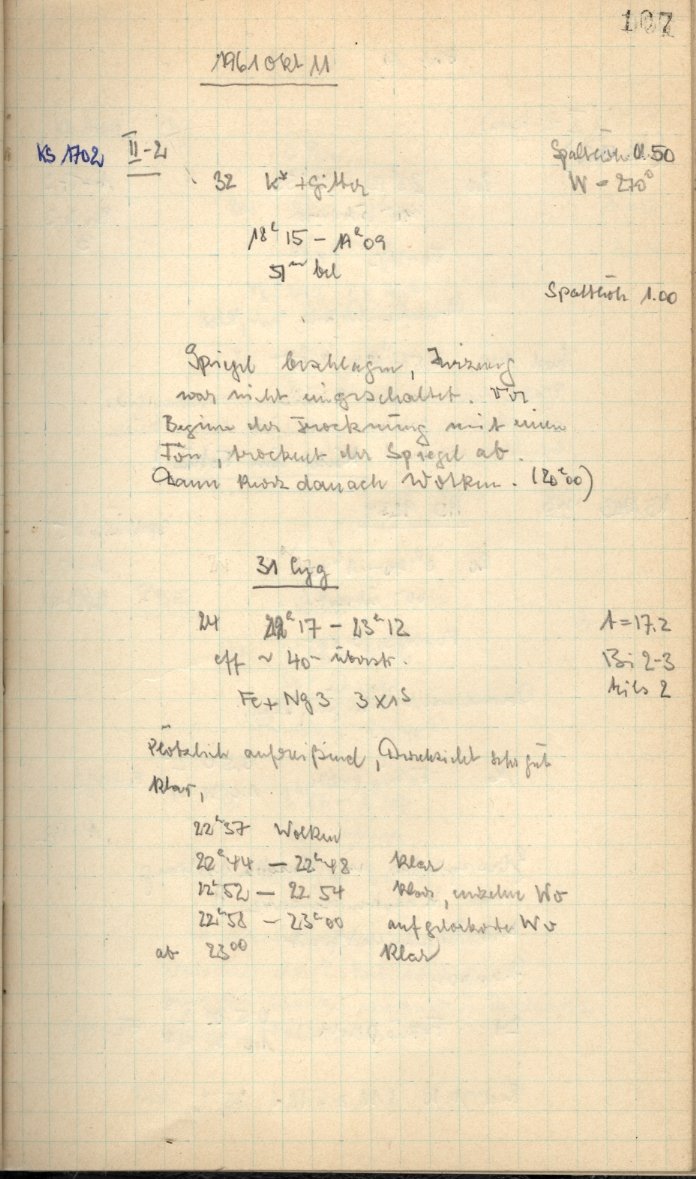 107
1961 Okt 11
KS 1702 II-2 Spalthöh 0.50
32 K* + Gitter W = 270°
18h 15 - 19h 09
51m bel
Spalthöh 1.00
Spiegel beschlagen, Heizung
war nicht eingeschaltet. Vor
Beginn der Trocknung mit einem
Fön, trocknet der Spiegel ab.
Dann kurz danach Wolken. (20h00)
31 Cyg
24 22h 17 - 23h 12 t = 17.2
eff ~ 40m Bi 2-3
Fe + Ng 3 3 x 1s teils 2
Plötzlich aufreißend, Durchsicht sehr gut
klar,
22h 37 Wolken
22h 44 - 22h 48 klar
22h 52 - 22 54 klar, einzelne Wo
22h 58 - 23h 00 aufgelockerte Wo
ab 23 00 klar